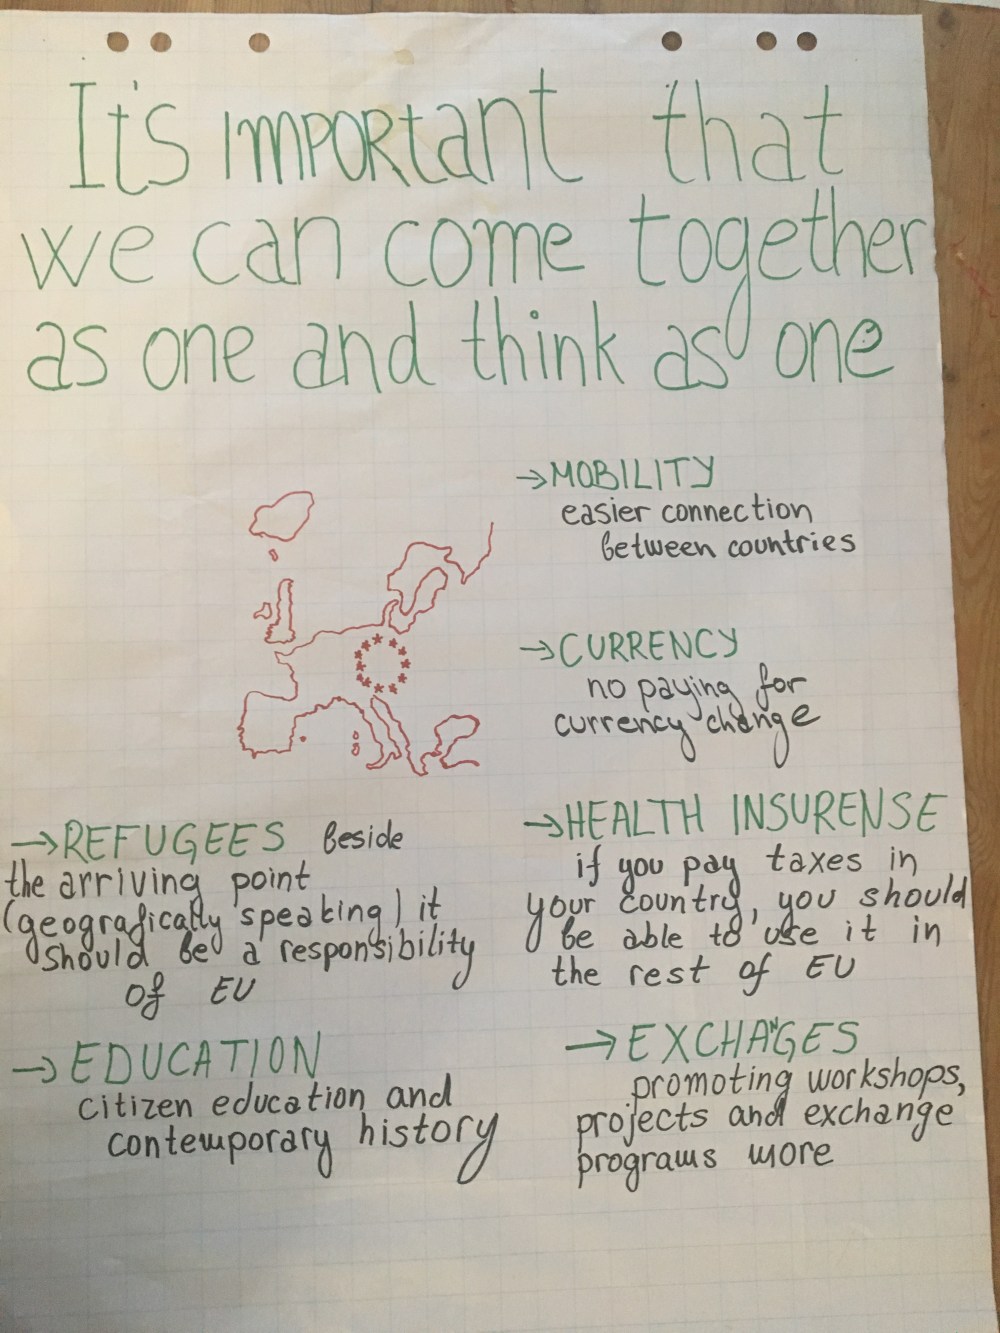 It's IMPORtant that
we can come together
as one and think as one
→MOBILITY
easier connection
between countries
→CURRENCY
no paying for
currency change
→REFUGEES beside
the arriving point
(geografically speaking) it
should be a responsibility
of EU
→HEALTH INSURENSE
if you pay taxes in
your country, you should
be able to use it in
the rest of EU
→EDUCATION
citizen education and
contemporary history
→EXCHANGES
promoting workshops,
projects and exchange
programs more